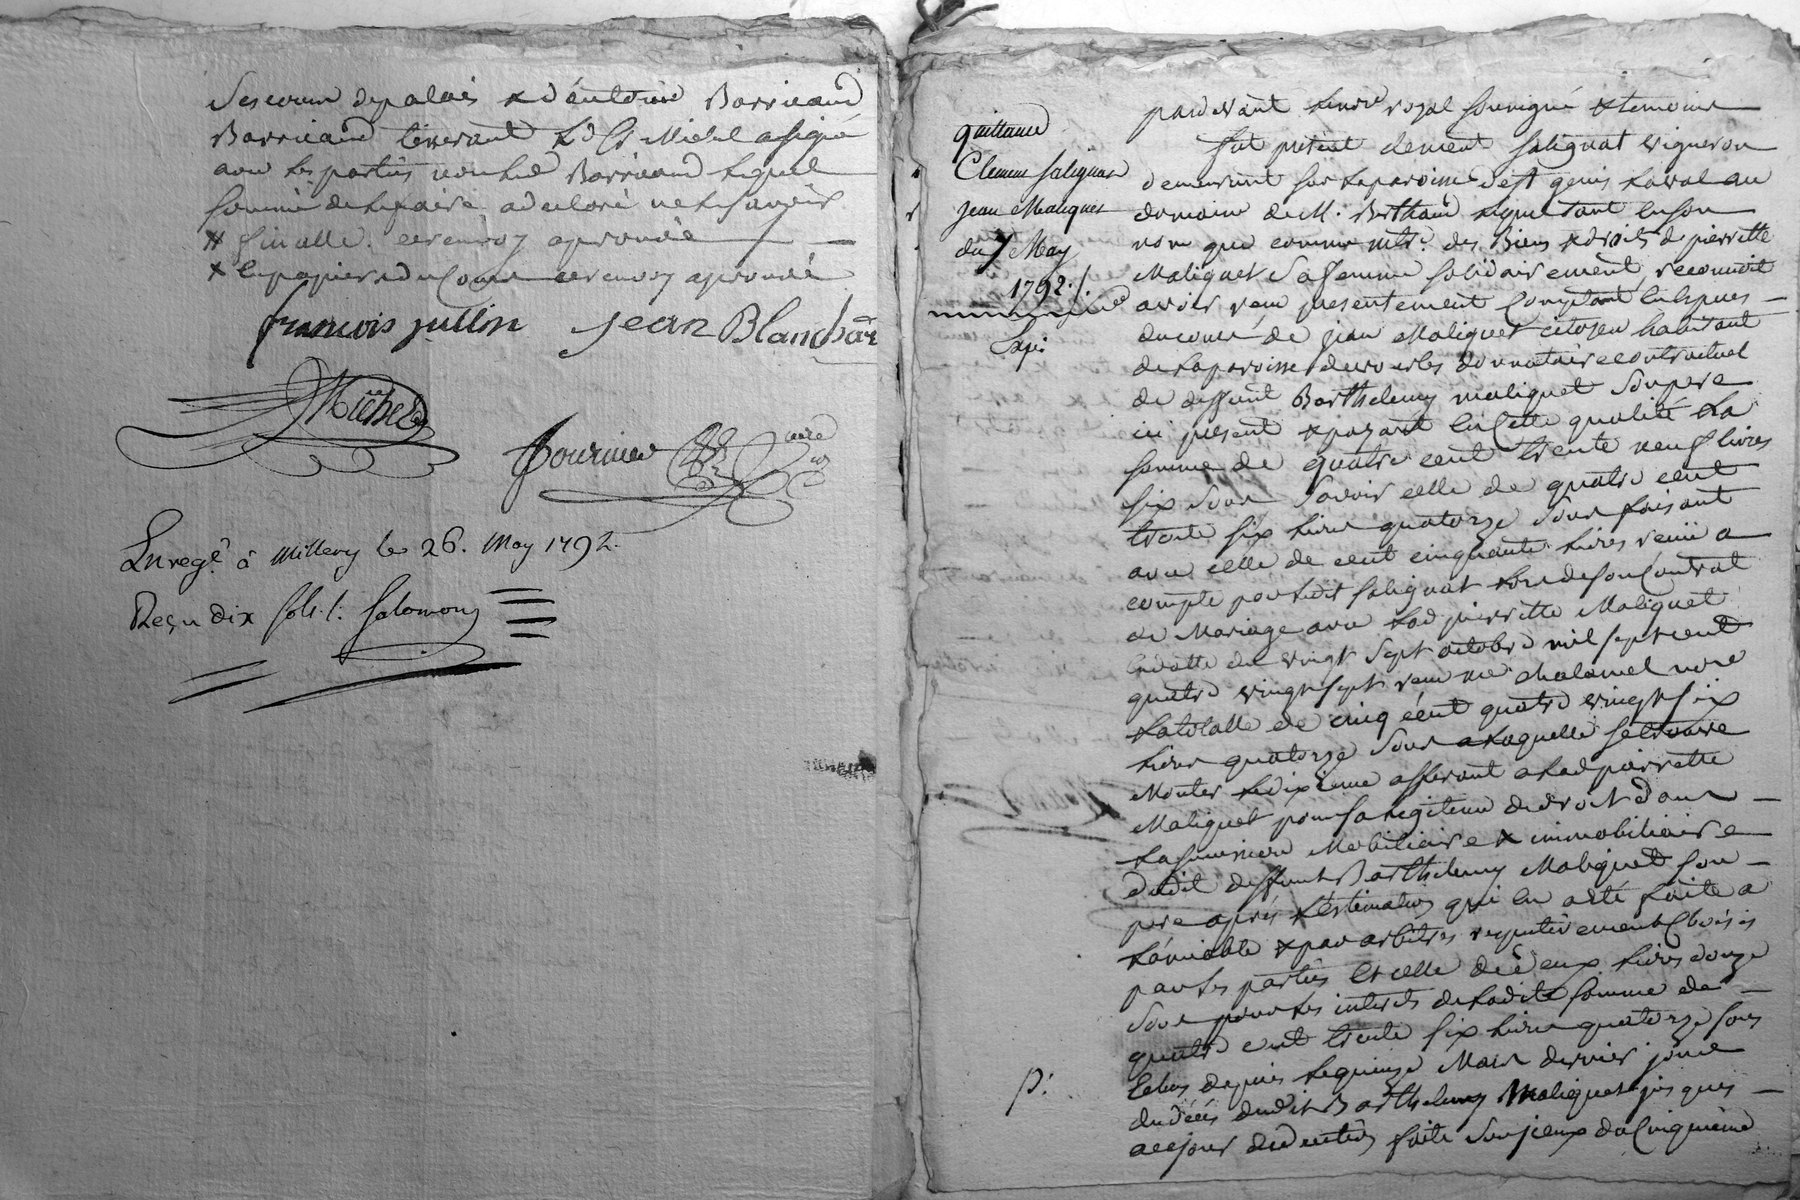 Barricaud
Barricaud tisserand & Michel a signé
avec les parties non led Barricaud lequel
sommé de le faire a declaré ne le savoir
cerenvoy aprouvé
& cerenvoy aprouvé
francois jullin jean Blanchard
Michel
fournier nore
Enregé à Millery le 26. May 1792.
Reçu dix sols /. Salomon
quittance
Clement Salignat
jean Maliquet
du 7 May
1792./.
Expé
pardevant lenore royal soussigné & temoins
fut présent clement Salignat vigneron
demeurant sur la paroisse de st genis Laval au
domaine de M. Berthaud lequel tant en son
nom que comme mtre des Biens & droits de pierrette
Maliquet sa femme solidairement reconnoit
avoir reçu presentement comptant en espèces
de jean Maliquet citoyen habitant
de la paroisse de vourles donnataire contractuel
de deffunt Barthelemy maliquet son pere
ici present & payant en cette qualité la
somme de quatre cent trente neuf livres
six sous savoir celle de quatre cent
trente six livres quatorze sous faisant
avec celle de cent cinquante livres recue a
compte par ledit Salignat lors de son Contrat
de Mariage avec lad pierrette Maliquet
en datte du vingt sept octobre mil sept cent
quatre vingt sept recu me chalamel nore
la totalle de cinq cent quatre vingt six
livres quatorze sous a laquelle se trouve
Monter le dixieme afferant a lad pierrette
Maliquet pour sa legitime de droit dans
la mobiliaire & immobiliaire
dudit deffunt Barthelemy Maliquet son
pere après l'estimation qui en a été faite a
l'amiable & par arbitres respectivement choisis
par les parties et celle de deux livres douze
sous pour les interets de ladite somme de
quatre cent trente six livres quatorze sous
echus depuis le quinze Mars dernier jour
du décés dudit Barthelemy Maliquet jusques
a ce jour deduction faite sur iceux du Cinquieme
p: